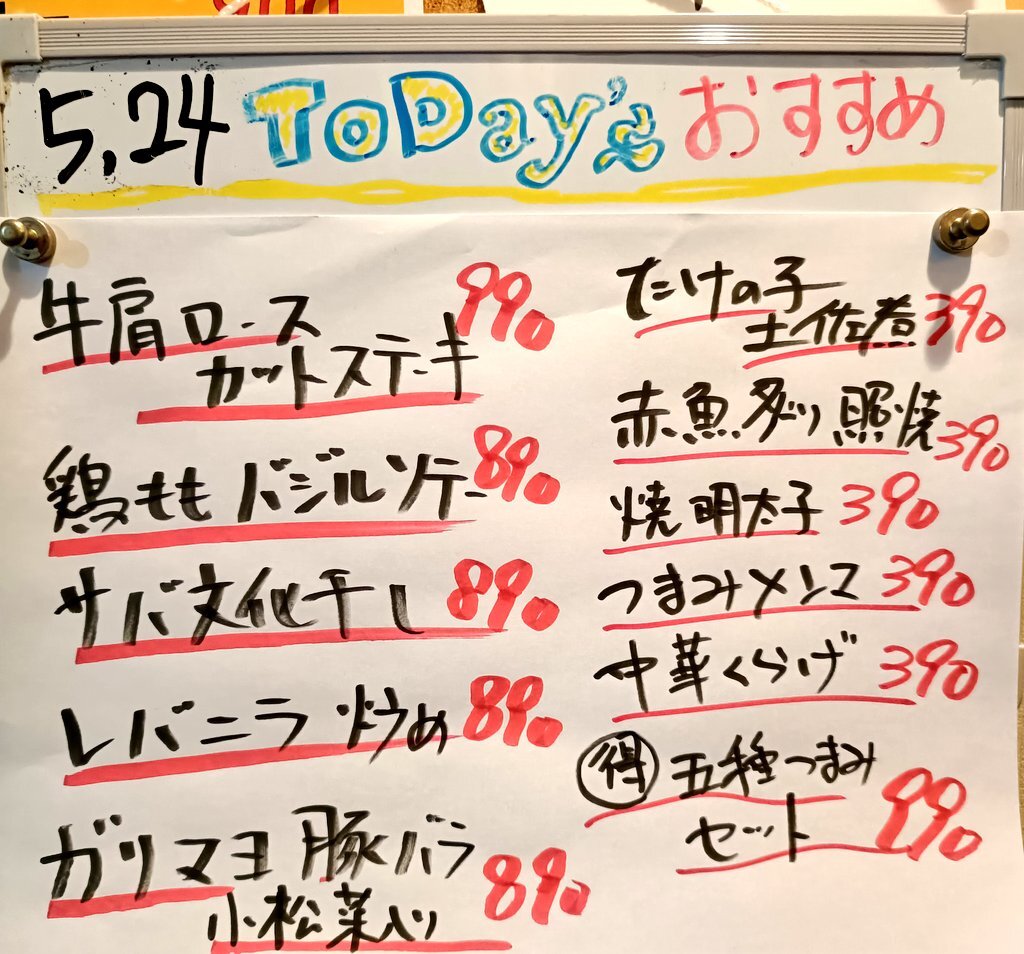 5,24 ToDay's おすすめ
牛肩ロース 990
カットステーキ
鶏もも バジルソテー 890
サバ文化干し 890
レバニラ炒め 890
ガリマヨ豚バラ
小松菜入り 890
たけの子
土佐煮 390
赤魚炙り照焼 390
焼明太子 390
つまみメンマ 390
中華くらげ 390
得 五種つまみ
セット 990